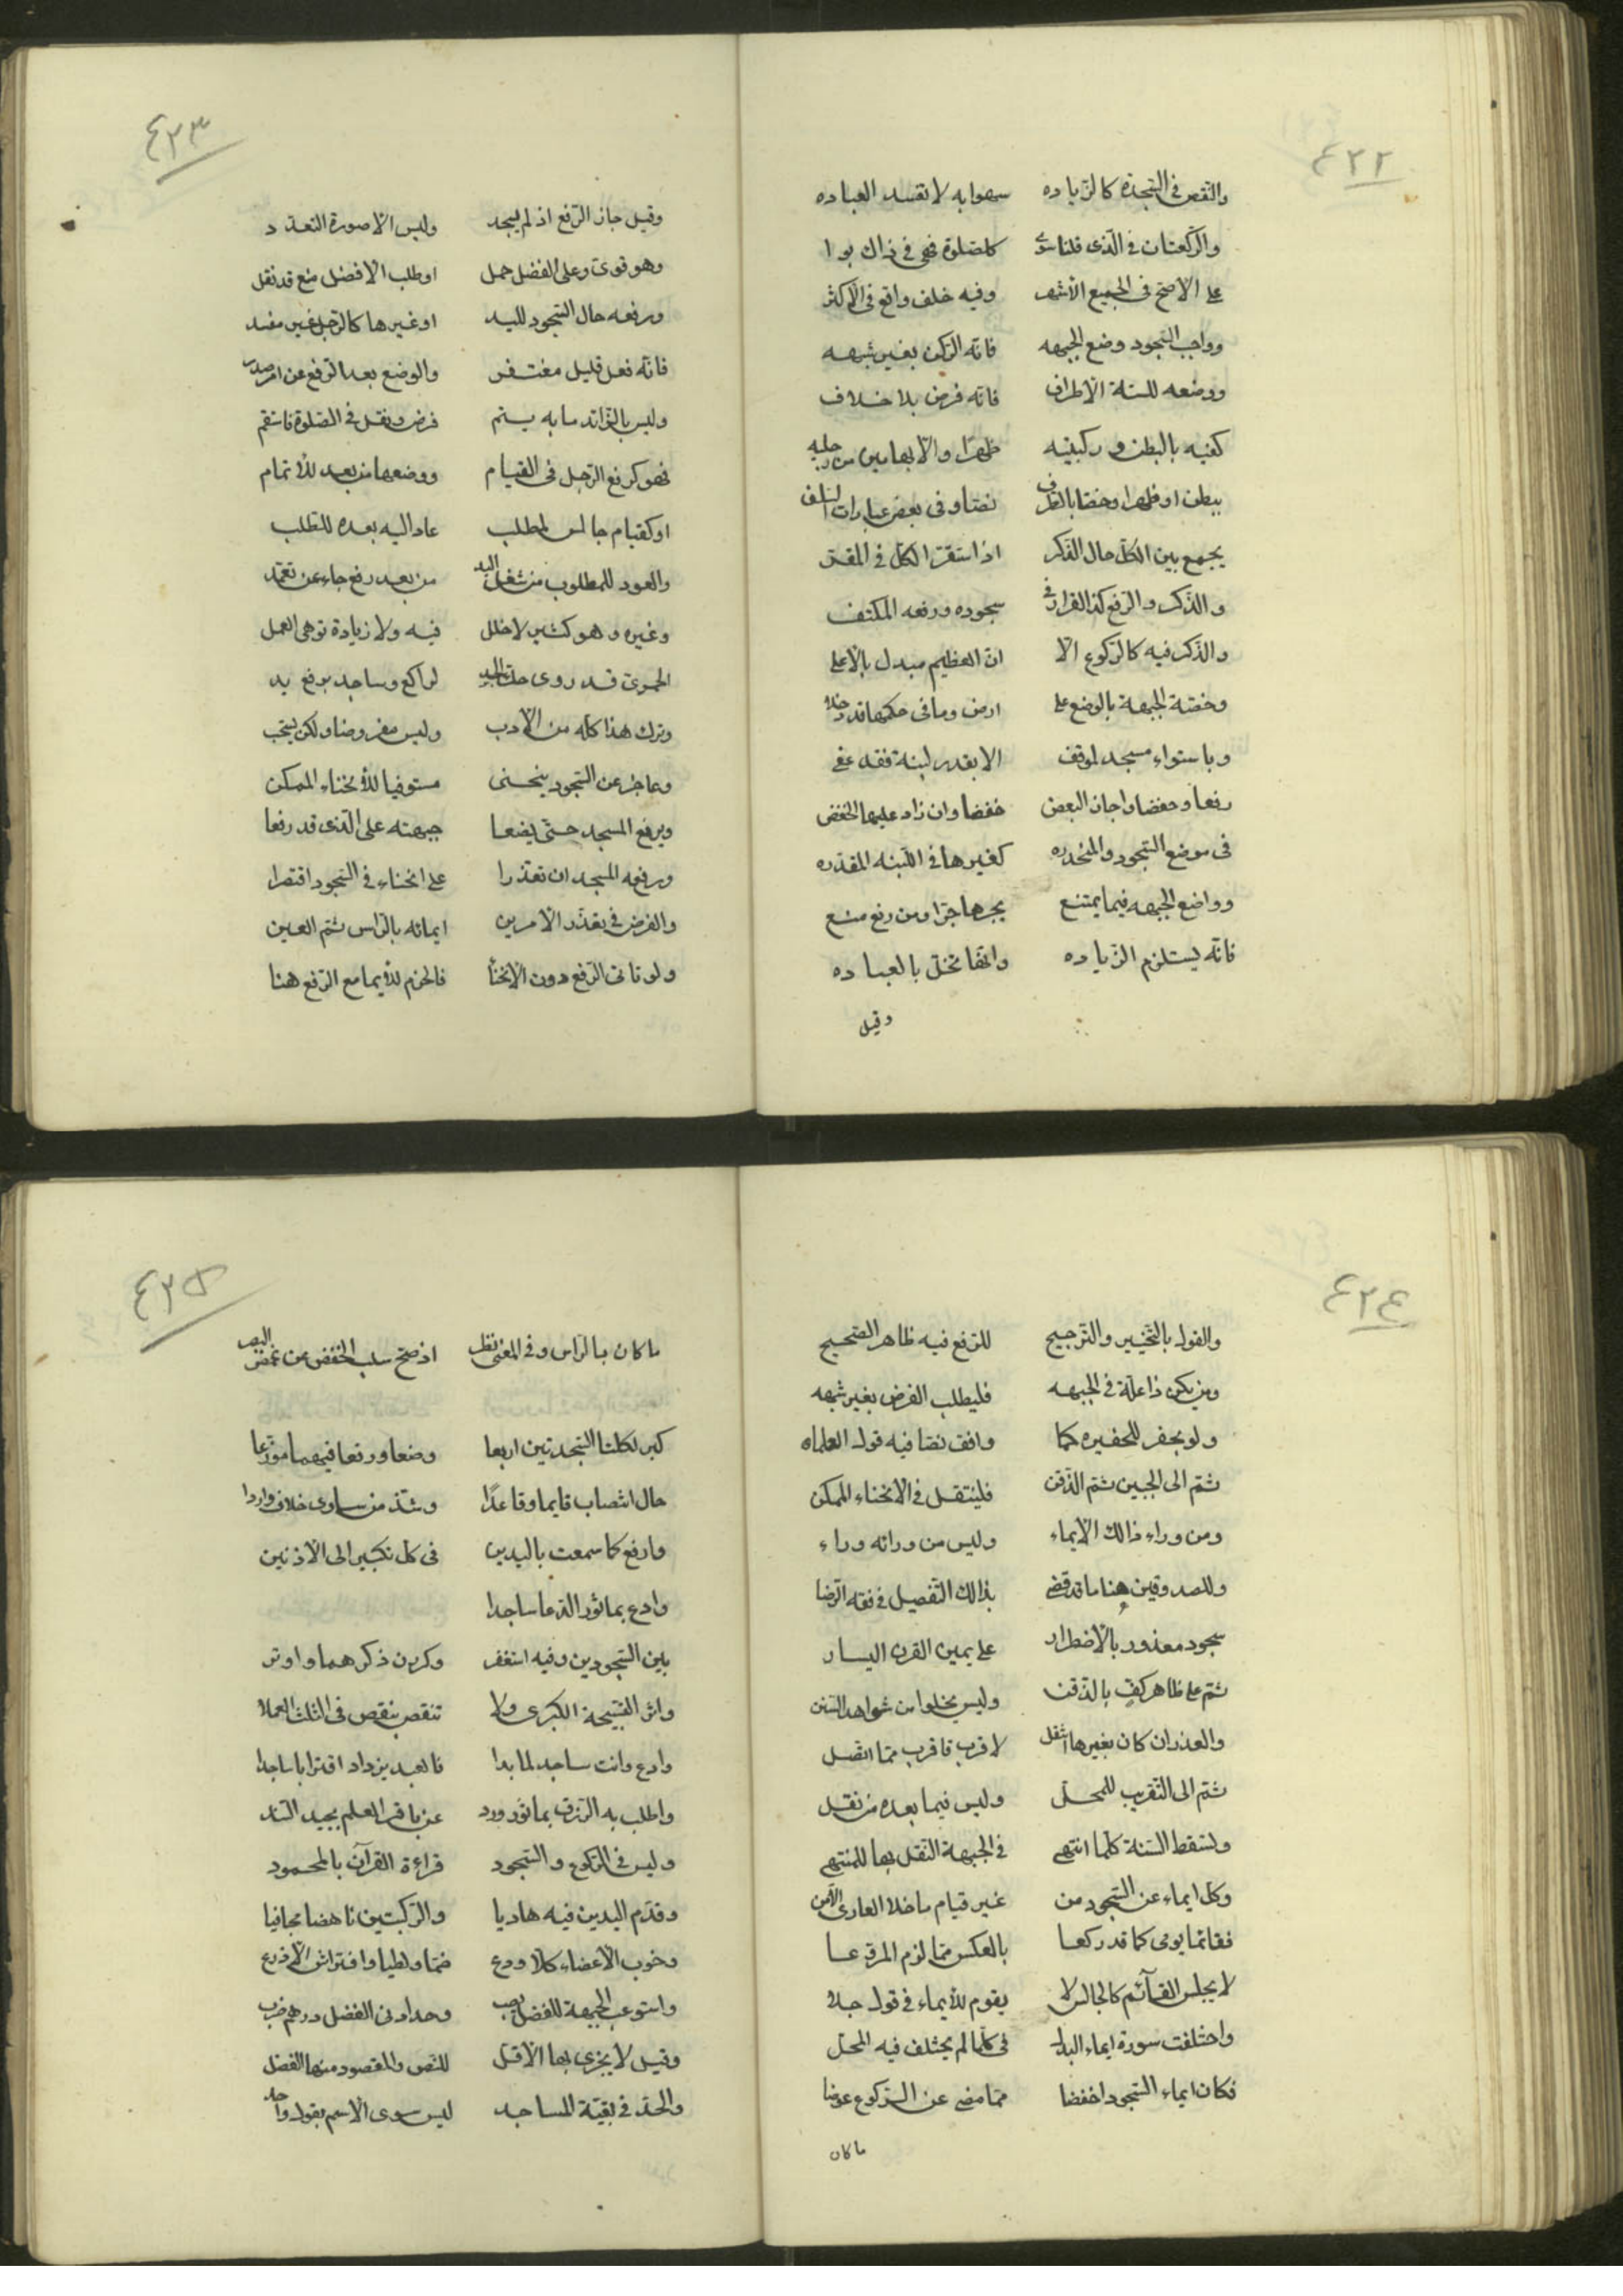 ٤٢٢
والنقص في السجدة كالزياده سهوا به لا تفسد العباده
والركعتان في الذى قلنا سوى كل صلوة فهى في ذاك بوا
على الاصح في الجميع الاشهر وفيه خلف واقع في الاكثر
وواجب السجود وضع الجبهه فانه الركن بغير شبهه
ووضعه للستة الاطراف فانه فرض بلا خلاف
كفيه بالبطن وركبتيه ظهرا والابهامين من رجليه
ببطن او ظهر وخصا بالطرف نصا وفى بعض عبارات السلف
يجمع بين الكل حال الذكر اذا ستقر الكل في المقر
والذكر والرفع كذا القرار في سجوده ورفعه المكتنف
والذكر فيه كالركوع الا ان العظيم مبدل بالاعلى
وخصة الجبهة بالوضع على ارض وما فى حكمها قد دخلا
وباستواء مسجد لموقف الا بقدر لبنة فقد عفى
رفعا وخفضا واجاز البعض خفضا وان زاد عليها الخفض
فى موضع السجود والمنحدره كغيرها في اللبنه المقدره
وواضع الجبهه فيما يمتنع يجرها جرا ومن رفع منع
فانه يستلزم الزياده وانها تخل بالعباده
وقيل
٤٢٣
وقيل جاز الرفع اذ لم يسجد وليس الا صورة التعدد
وهو قوى وعلى الفضل حمل او طلب الافضل منع قد نقل
ورفعه حال السجود لليد او غيرها كالرجل غير مفسد
فانه فعل قليل مغتفر والوضع بعد الرفع عن امر صدر
وليس بالزائد ما به يتم فرض ونقل في الصلوة فاستقم
فهو كرفع الرجل فى القيام ووضعها من بعد للاتمام
او كقيام جالس لمطلب عاد اليه بعده للطلب
والعود للمطلوب من شغل اليد من بعد رفع جاء عن تعمد
وغيره وهو كثير لا خلل فيه ولا زيادة توهى العمل
الحموى قد روى لراكع وساجد برفع يد
وترك هذا كله من الادب وليس مفروضا ولكن يستحب
وعاجز عن السجود ينحنى مستوفيا للانحناء الممكن
ويرفع المسجد حتى يضعا جبهته على الذى قد رفعا
ورفعه المسجد ان تعذرا على انحناء في السجود اقتصرا
والفرض في تعذر الامرين ايمائه بالراس ثم العين
ولو تاتى الرفع دون الانحنا فالحزم للايما مع الرفع هنا
٤٢٤
والقول بالتخيير والترجيح للرفع فيه ظاهر الصحيح
ومن يكن ذا علة في الجبهه فليطلب الفرض بغير شبهه
ولو بحفر للحفيره كما وافق نصا فيه قول العلماء
ثم الى الجبين ثم الذقن فلينتقل في الانحناء الممكن
ومن وراء ذالك الايماء وليس من ورائه وراء
وللصدوقين هنا ما قد قضى بذالك التفصيل في فقه الرضا
سجود معذور بالاضطرار على يمين القرن اليسار
ثم على ظاهر كف بالذقن وليس يخلو من شواهد السنن
والعذر ان كان بغيرها انتقل لاقرب فاقرب مما اتصل
ثم الى التقريب للمحل وليس فيما بعده من نقل
وتسقط الستة كلما انتهى في الجبهة النقل بها للمنتهى
وكل ايماء عن السجود من غير قيام ما خلا العارى الأمن
فقائما يومى كما قد ركعا بالعكس مما لزم المرقعا
لا يجلس القائم كالجالس لا يقوم للايماء في قول جلا
واختلفت سورة ايماء البدل في كلما لم يختلف فيه المحل
فكان ايماء السجود اخفضا مما مضى عن الركوع عوضا
ما كان
٤٢٥
ما كان بالراس وفى المغنى نظر اذ صح سلب الخفض عن غمض البصر
كبر لكلتا السجدتين اربعا وضعا ورفعا فيهما موزعا
حال انتصاب قايما وقاعدا وشذ من ساوى خلاف واردا
وارفع كما سمعت باليدين فى كل تكبير الى الاذنين
وادع بماثور الدعا ساجدا
بين السجودين وفيه استغفر وكررن ذكرهما واوتر
واثر التسبيحة الكبرى ولا تنقص بنقص في الثلث العملا
وادع وانت ساجد لما بدا فالعبد يزداد اقترابا ساجدا
واطلب به الرزق بماثور ورد عن باقر العلم بجيد السند
وليس في الركوع والسجود قراءة القرآن بالمحمود
وقدم اليدين فيه هاديا والركبتين ناهضا مجافيا
وخوب الاعضاء كلا ودع ضما ولطيا وافتراش الاذرع
واستوعب الجبهة للفضل تصب وحد ادنى الفضل درهم ضرب
وقيل لا يجزى بها الاقل للنص والمقصود منها الفضل
والحد في بقية المساجد ليس سوى الاسم بقول واحد